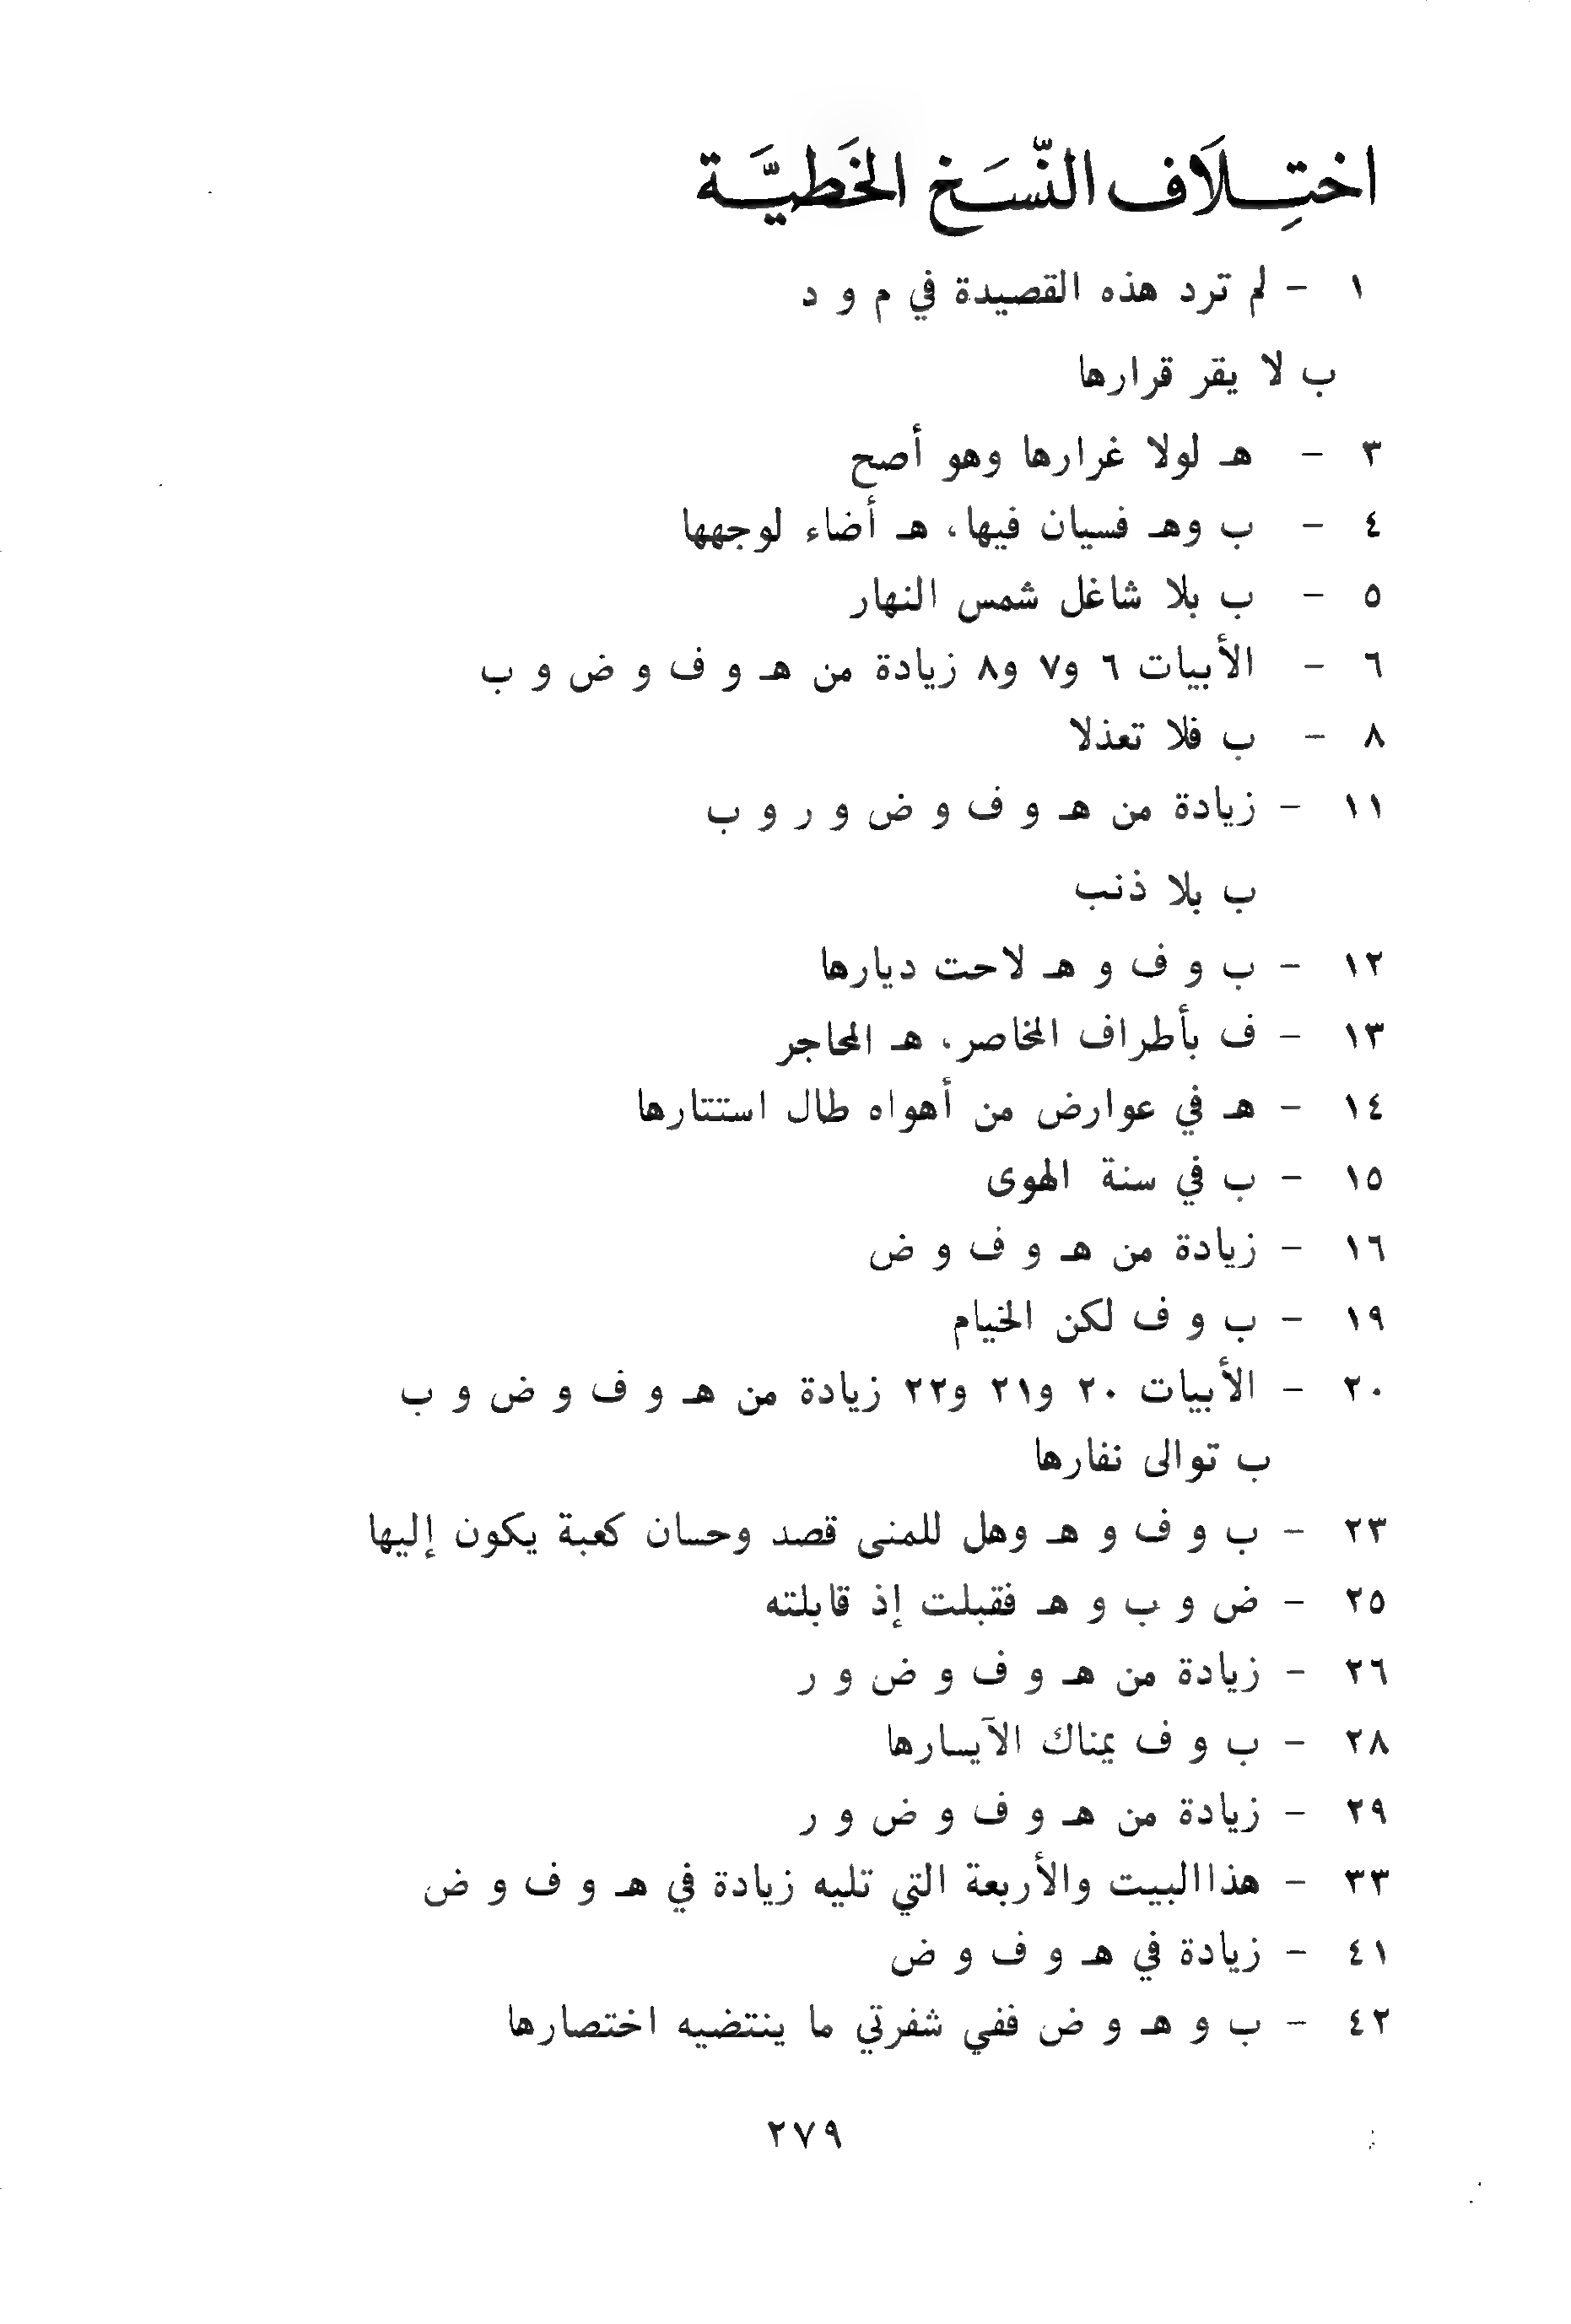 اختِلَاف النّسَخ الخَطيَّة
١ - لم ترد هذه القصيدة في م و د
ب لا يقر قرارها
٣ - هـ لولا غرارها وهو أصح
٤ - ب وهـ فسيان فيها، هـ أضاء لوجهها
٥ - ب بلا شاغل شمس النهار
٦ - الأبيات ٦ و٧ و٨ زيادة من هـ و ف و ض و ب
٨ - ب فلا تعذلا
١١ - زيادة من هـ و ف و ض و ر و ب
ب بلا ذنب
١٢ - ب و ف و هـ لاحت ديارها
١٣ - ف بأطراف المخاصر، هـ المحاجر
١٤ - هـ في عوارض من أهواه طال استتارها
١٥ - ب في سنة الهوى
١٦ - زيادة من هـ و ف و ض
١٩ - ب و ف لكن الخيام
٢٠ - الأبيات ٢٠ و٢١ و٢٢ زيادة من هـ و ف و ض و ب
ب توالى نفارها
٢٣ - ب و ف و هـ وهل للمنى قصد وحسان كعبة يكون إليها
٢٥ - ض و ب و هـ فقبلت إذ قابلته
٢٦ - زيادة من هـ و ف و ض و ر
٢٨ - ب و ف يمناك الآيسارها
٢٩ - زيادة من هـ و ف و ض و ر
٣٣ - هذاالبيت والأربعة التي تليه زيادة في هـ و ف و ض
٤١ - زيادة في هـ و ف و ض
٤٢ - ب و هـ و ض ففي شفرتي ما ينتضيه اختصارها
٢٧٩